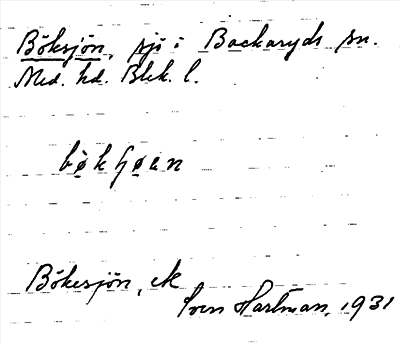 Böksjön, sjö i Backaryds sn.
Med. hd. Blek. l.
Bökesjön, ek
Sven Hartman, 1931